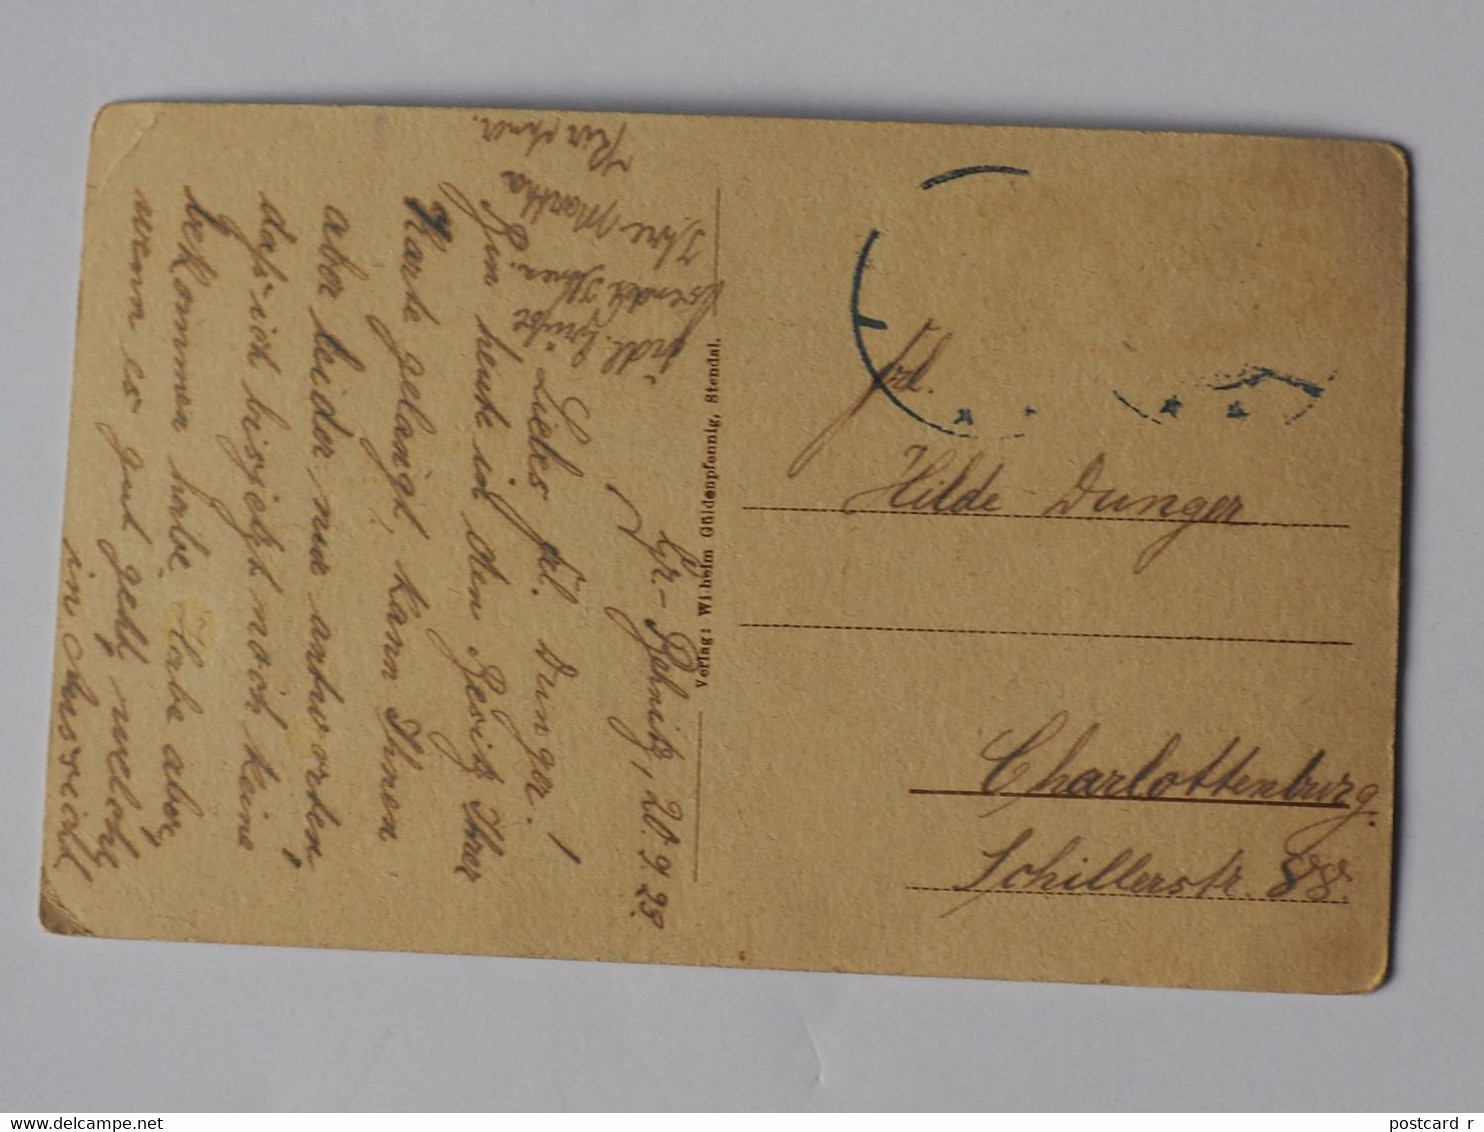 Gr-Schnitz, 20.9.23.
Liebes Frl. Dunger!
Bin heute in den Besitz Ihrer
Karte gelangt, kann Ihnen
aber leider nur antworten,
daß ich bisjetzt noch keine
bekommen habe. Habe aber,
wenn es gut geht, welche
in Aussicht
frdl. Grüße
sendet Ihnen
Ihre Martha
Kirschner.
Verlag: Wilhelm Güldenpfennig, Stendal.
Frl.
Hilde Dunger
Charlottenburg.
Schillerstr. 88.
postcard r